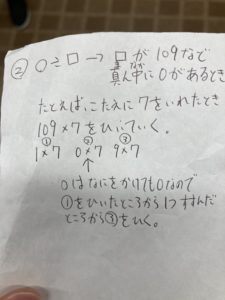 ② ○÷□→□が109など
真ん中に0があるとき
なか
たとえば、こたえに7をいれたとき
109×7をひいていく。
① ② ③
1×7 0×7 9×7
↑
0はなにをかけても0なので
①をひいたところから1つすすんだ
ところから③をひく。